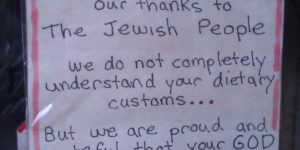 Our thanks to
The Jewish People
we do not completely
understand your dietary
customs...
But we are proud and
that your GOD